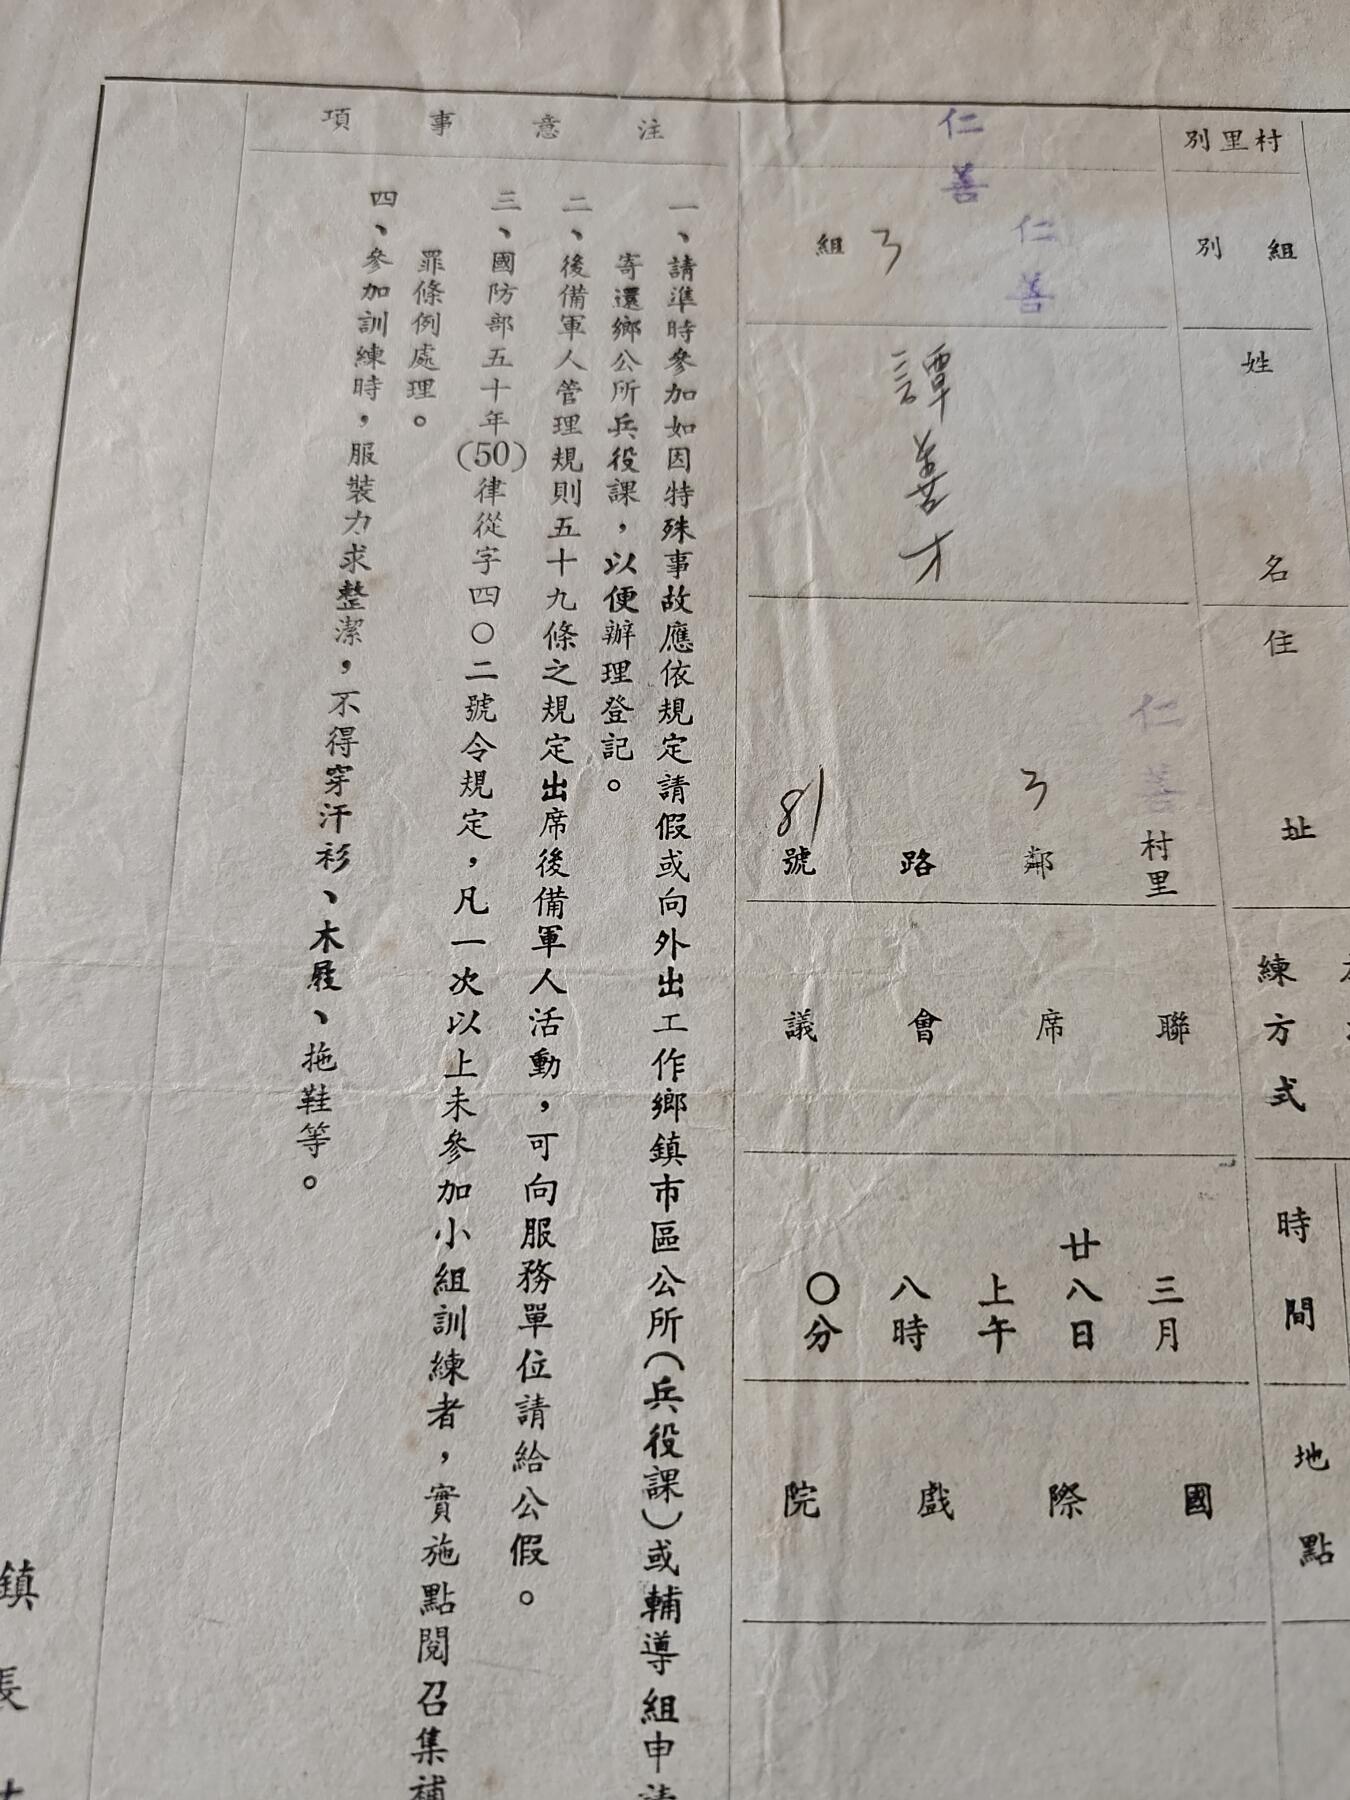 村里別
仁善
組別
仁善
3組
姓名
譚善才
住址
仁善村里
3鄰
路
81號
練方式
聯席會議
時間
三月
廿八日
上午
八時
〇分
地點
國際戲院
注意事項
一、請準時參加如因特殊事故應依規定請假或向外出工作鄉鎮市區公所(兵役課)或輔導組申請
寄還鄉公所兵役課,以便辦理登記。
二、後備軍人管理規則五十九條之規定出席後備軍人活動,可向服務單位請給公假。
三、國防部五十年(50)律從字四〇二號令規定,凡一次以上未參加小組訓練者,實施點閱召集補
罪條例處理。
四、參加訓練時,服裝力求整潔,不得穿汗衫、木屐、拖鞋等。
鎮長